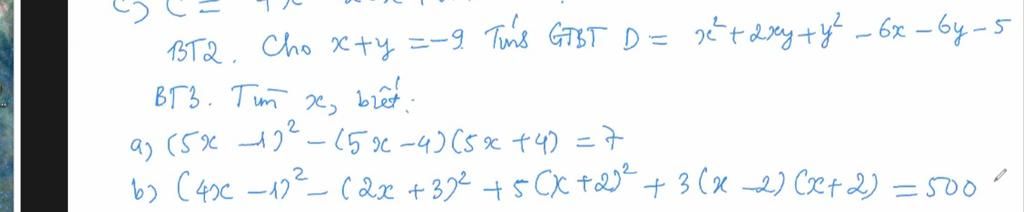 c) C =
BT2. Cho x+y = -9. Tính GTBT D = x² + 2xy + y² - 6x - 6y - 5
BT3. Tìm x, biết:
a) (5x - 1)² - (5x - 4)(5x + 4) = 7
b) (4x - 1)² - (2x + 3)² + 5(x + 2)² + 3(x - 2)(x + 2) = 500